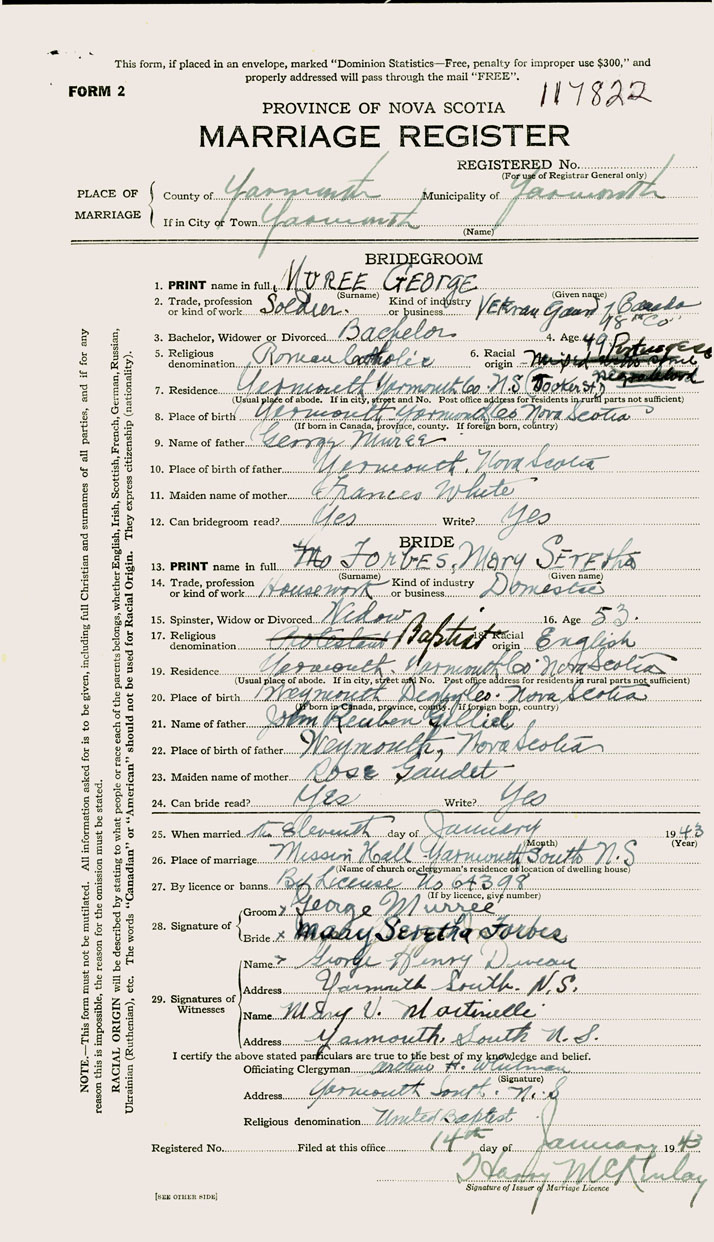 This form, if placed in an envelope, marked "Dominion Statistics—Free, penalty for improper use $300," and
properly addressed will pass through the mail "FREE".
FORM 2
117822
PROVINCE OF NOVA SCOTIA
MARRIAGE REGISTER
REGISTERED No.
(For use of Registrar General only)
PLACE OF MARRIAGE
County of Yarmouth Municipality of Yarmouth
If in City or Town Yarmouth
(Name)
BRIDEGROOM
1. PRINT name in full MUREE GEORGE
(Surname) (Given name)
2. Trade, profession or kind of work Soldier. Kind of industry or business Veteran Guard of Canada 98 "Co"
3. Bachelor, Widower or Divorced Bachelor 4. Age 49
5. Religious denomination Roman Catholic 6. Racial origin Portugese
7. Residence Yarmouth Yarmouth Co. N.S (Tooker St.)
(Usual place of abode. If in city, street and No. Post office address for residents in rural parts not sufficient)
8. Place of birth Yarmouth Yarmouth Co Nova Scotia
(If born in Canada, province, county. If foreign born, country)
9. Name of father George Muree
10. Place of birth of father Yarmouth, Nova Scotia
11. Maiden name of mother Frances White
12. Can bridegroom read? Yes Write? Yes
BRIDE
13. PRINT name in full FORBES, MARY SERETHA
(Surname) (Given name)
14. Trade, profession or kind of work Housework Kind of industry or business Domestic
15. Spinster, Widow or Divorced Widow 16. Age 53.
17. Religious denomination Protestant Baptist 18. Racial origin English
19. Residence Yarmouth Yarmouth Co. Nova Scotia
(Usual place of abode. If in city, street and No. Post office address for residents in rural parts not sufficient)
20. Place of birth Weymouth Digby Co. Nova Scotia
(If born in Canada, province, county. If foreign born, country)
21. Name of father John Reuben
22. Place of birth of father Weymouth, Nova Scotia
23. Maiden name of mother Rose Gaudet
24. Can bride read? Yes Write? Yes
25. When married the Eleventh day of January 1943
(Month) (Year)
26. Place of marriage Mission Hall Yarmouth South N.S
(Name of church or clergyman's residence or location of dwelling house)
27. By licence or banns By License No 64398
(If by licence, give number)
28. Signature of
Groom x George Murree
Bride x Mary Seretha Forbes
29. Signatures of Witnesses
Name George Henry
Address Yarmouth South. N.S.
Name Mary V. Martinelli
Address Yarmouth, South N.S.
I certify the above stated particulars are true to the best of my knowledge and belief.
Officiating Clergyman Arthur H. Whitman
(Signature)
Address Yarmouth South. N.S
Religious denomination United Baptist
Registered No. Filed at this office 14th day of January 1943
Harry McKinlay
Signature of Issuer of Marriage Licence
[SEE OTHER SIDE]
NOTE.—This form must not be mutilated. All information asked for is to be given, including full Christian and surnames of all parties, and if for any
reason this is impossible, the reason for the omission must be stated.
RACIAL ORIGIN will be described by stating to what people or race each of the parents belongs, whether English, Irish, Scottish, French, German, Russian,
Ukrainian (Ruthenian), etc. The words "Canadian" or "American" should not be used for Racial Origin. They express citizenship (nationality).